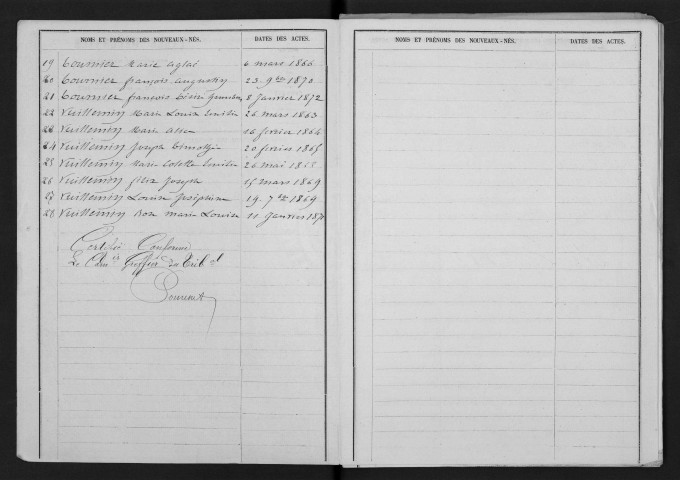 NOMS ET PRÉNOMS DES NOUVEAUX-NÉS. DATES DES ACTES.
19 Tournier Marie aglaé 6 mars 1866
20 Tournier françois augustin 23. 9bre 1870
21 Tournier françois 8 Janvier 1872
22 Vuillemin Marie Louise Emilie 26 mars 1863
23 Vuillemin Marie 16 fevrier 1864
24 Vuillemin Joseph Timothée 20 fevrier 1865
25 Vuillemin Marie Colette Emilie 26 mai
26 Vuillemin Joseph 15 mars 1869
27 Vuillemin Louise Joséphine 19. 7bre 1869
28 Vuillemin marie Louise 11 Janvier
Certifié Conforme
Le Greffier du Trib al
NOMS ET PRÉNOMS DES NOUVEAUX-NÉS. DATES DES ACTES.